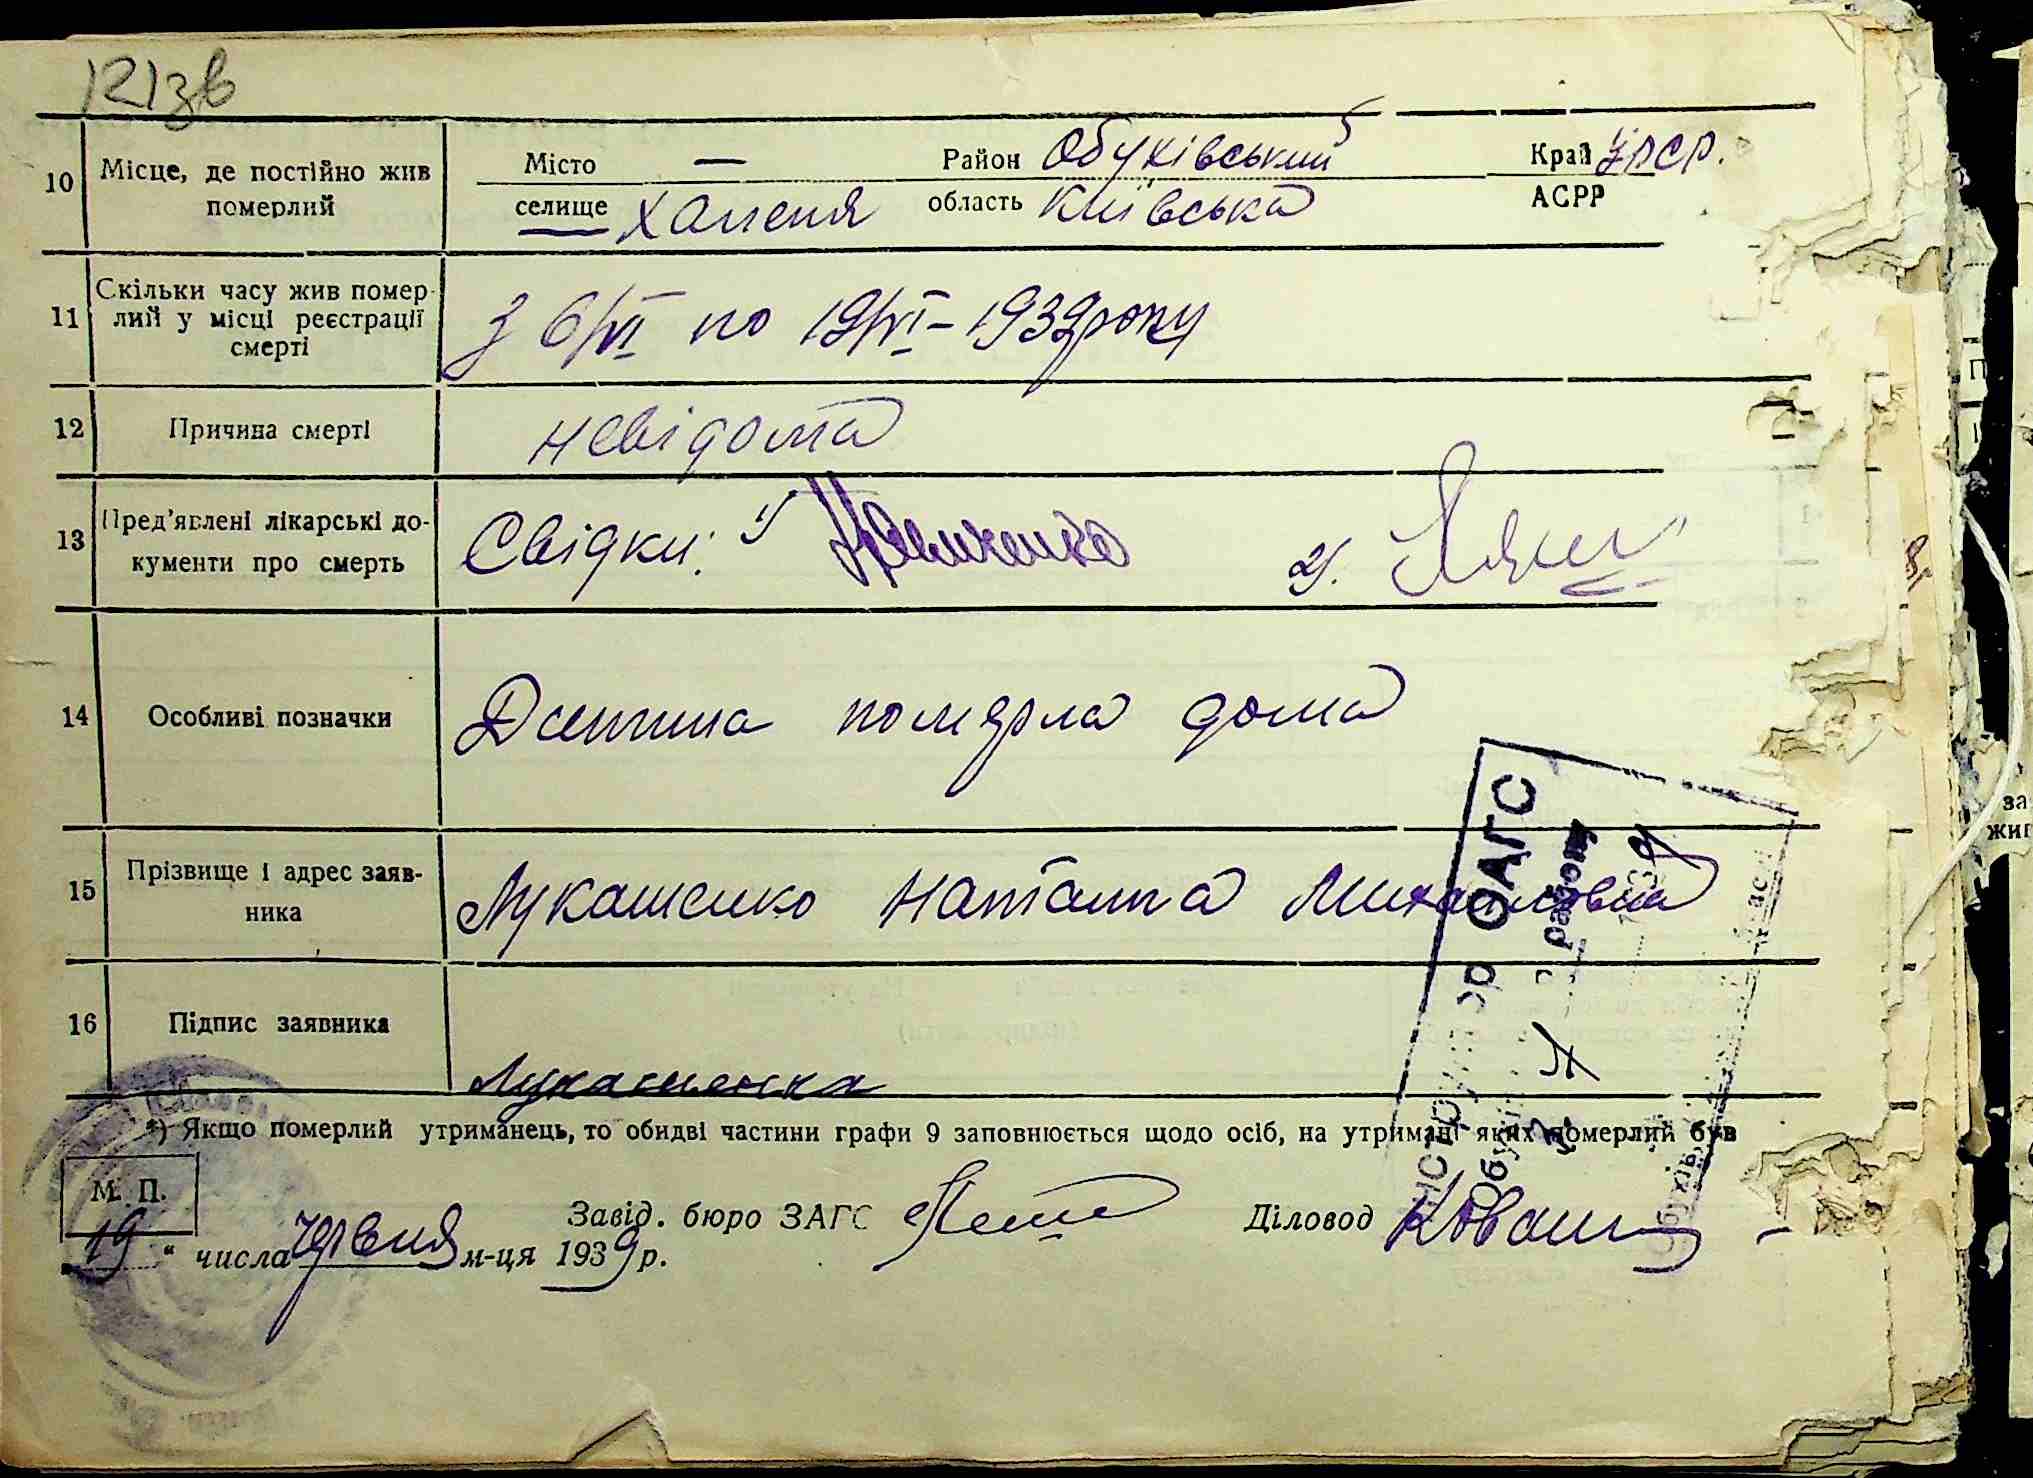 121зв
10 Місце, де постійно жив померлий Місто — Район Обухівський Край УРСР.
селище Халепя область Київська АСРР
11 Скільки часу жив померлий у місці реєстрації смерті З 6/VI по 19/VI – 1939 року
12 Причина смерті невідома
13 Пред'явлені лікарські документи про смерть Свідки: 1) 2).
14 Особливі позначки Дитина померла дома
15 Прізвище і адрес заявника Лукашенко Наталка Михайловна
16 Підпис заявника Лукашенка
*) Якщо померлий утриманець, то обидві частини графи 9 заповнюється щодо осіб, на утримані яких померлий був
М. П.
Завід. бюро ЗАГС Діловод
19 " числа червня м-ця 1939 р.
ОАГС
району